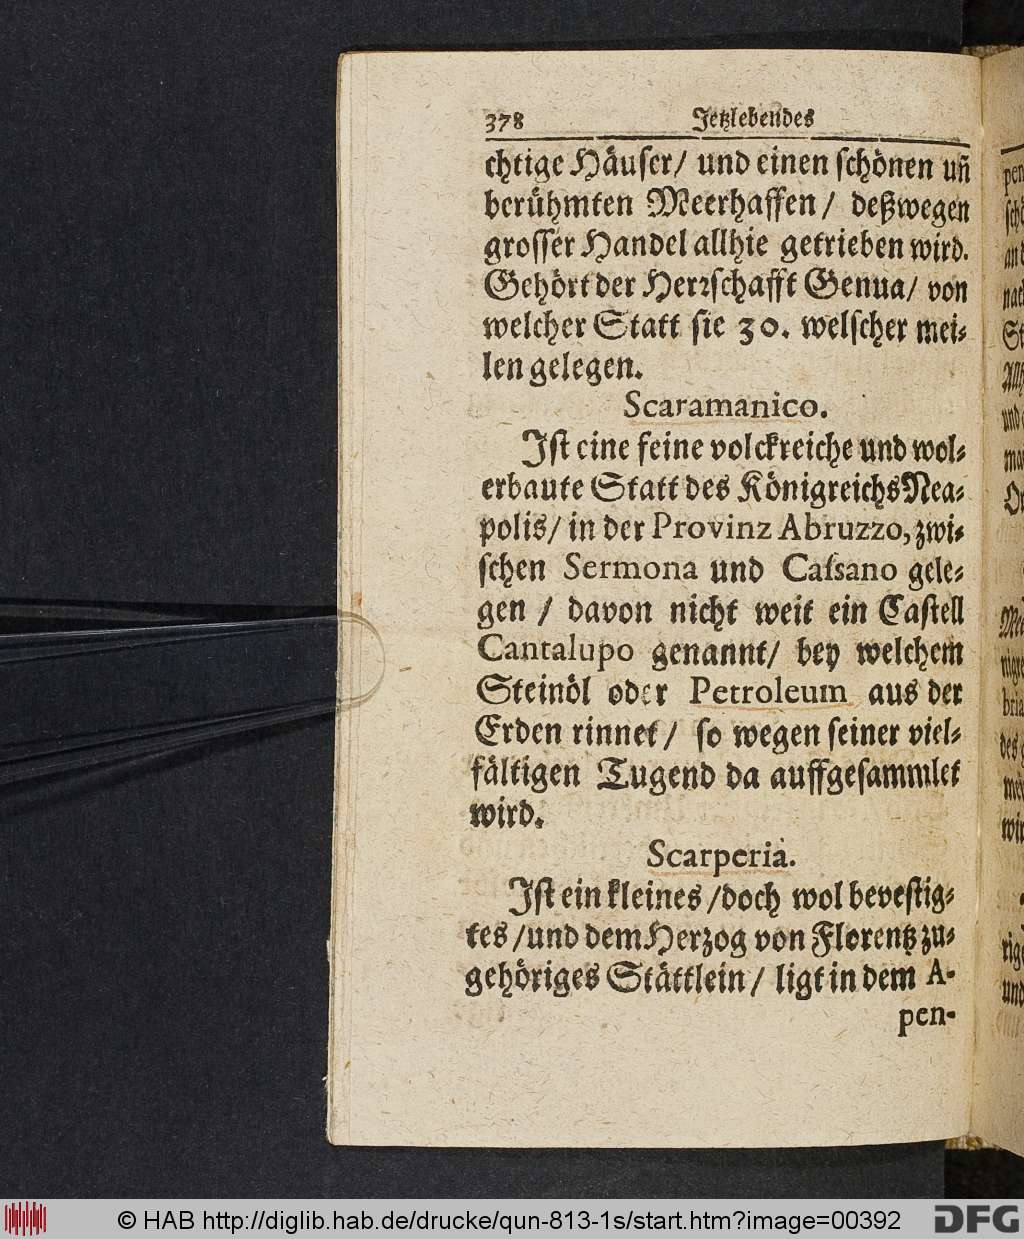 378 Jetzlebendes
chtige Häuser/ und einen schönen uñ
berühmten Meerhaffen/ deßwegen
grosser Handel allhie getrieben wird.
Gehört der Herrschafft Genua/ von
welcher Statt sie 30. welscher mei-
len gelegen.
Scaramanico.
Ist eine feine volckreiche und wol-
erbaute Statt des Königreichs Nea-
polis/ in der Provinz Abruzzo, zwi-
schen Sermona und Cassano gele-
gen / davon nicht weit ein Castell
Cantalupo genannt/ bey welchem
Steinöl oder Petroleum aus der
Erden rinnet/ so wegen seiner viel-
fältigen Tugend da auffgesammlet
wird.
Scarperia.
Ist ein kleines /doch wol bevestig-
tes /und dem Herzog von Florentz zu-
gehöriges Stättlein/ ligt in dem A-
pen-
© HAB http://diglib.hab.de/drucke/qun-813-1s/start.htm?image=00392
DFG